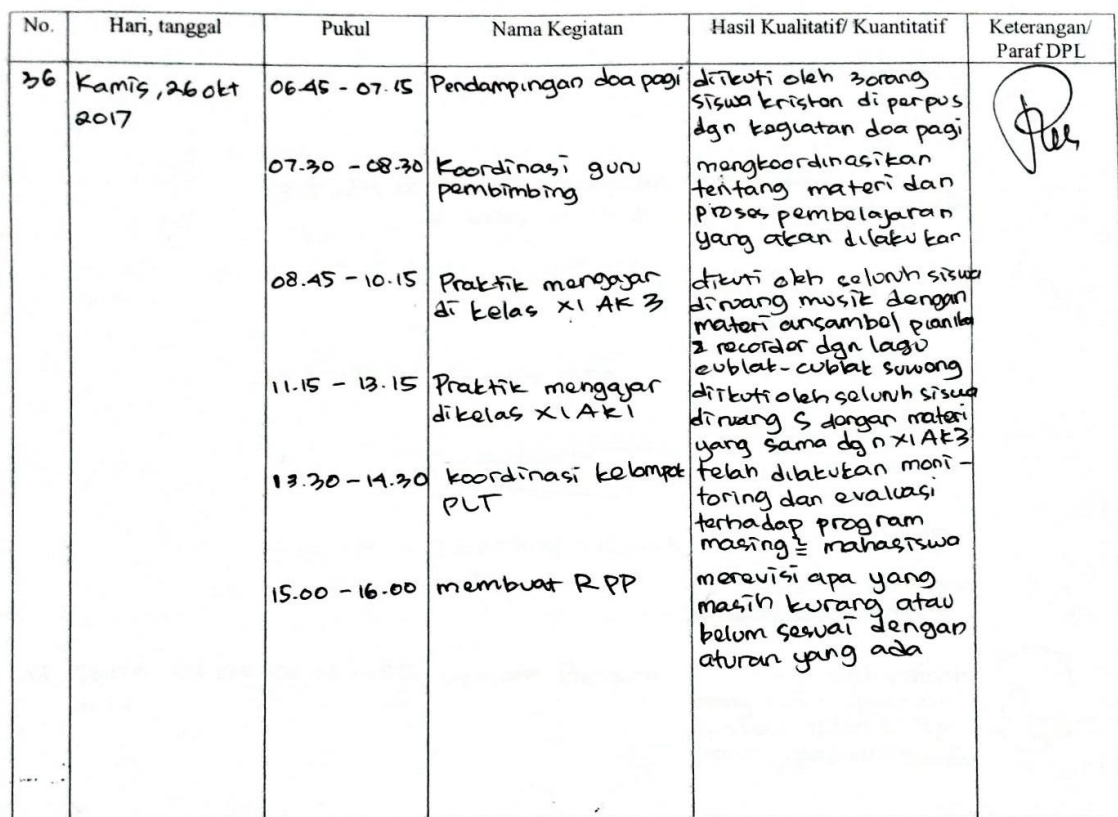 No. Hari, tanggal Pukul Nama Kegiatan Hasil Kualitatif/ Kuantitatif Keterangan/
Paraf DPL
36 Kamis, 26 okt 06.45 - 07.15 Pendampingan doa pagi diikuti oleh 3 orang
2017 siswa kristen di perpus
dgn kegiatan doa pagi
07.30 - 08.30 Koordinasi guru mengkoordinasikan
pembimbing tentang materi dan
proses pembelajaran
yang akan dilakukan
08.45 - 10.15 Praktik mengajar diikuti oleh seluruh siswa
di kelas XI AK 3 diruang musik dengan
materi ansambel pianika
& recorder dgn lagu
cublak-cublak suweng
11.15 - 13.15 Praktik mengajar diikuti oleh seluruh siswa
dikelas XI AK1 diruang 5 dengan materi
yang sama dgn XI AK3
13.30 - 14.30 koordinasi kelompok telah dilakukan moni-
PLT toring dan evaluasi
terhadap program
masing² mahasiswa
15.00 - 16.00 membuat RPP merevisi apa yang
masih kurang atau
belum sesuai dengan
aturan yang ada